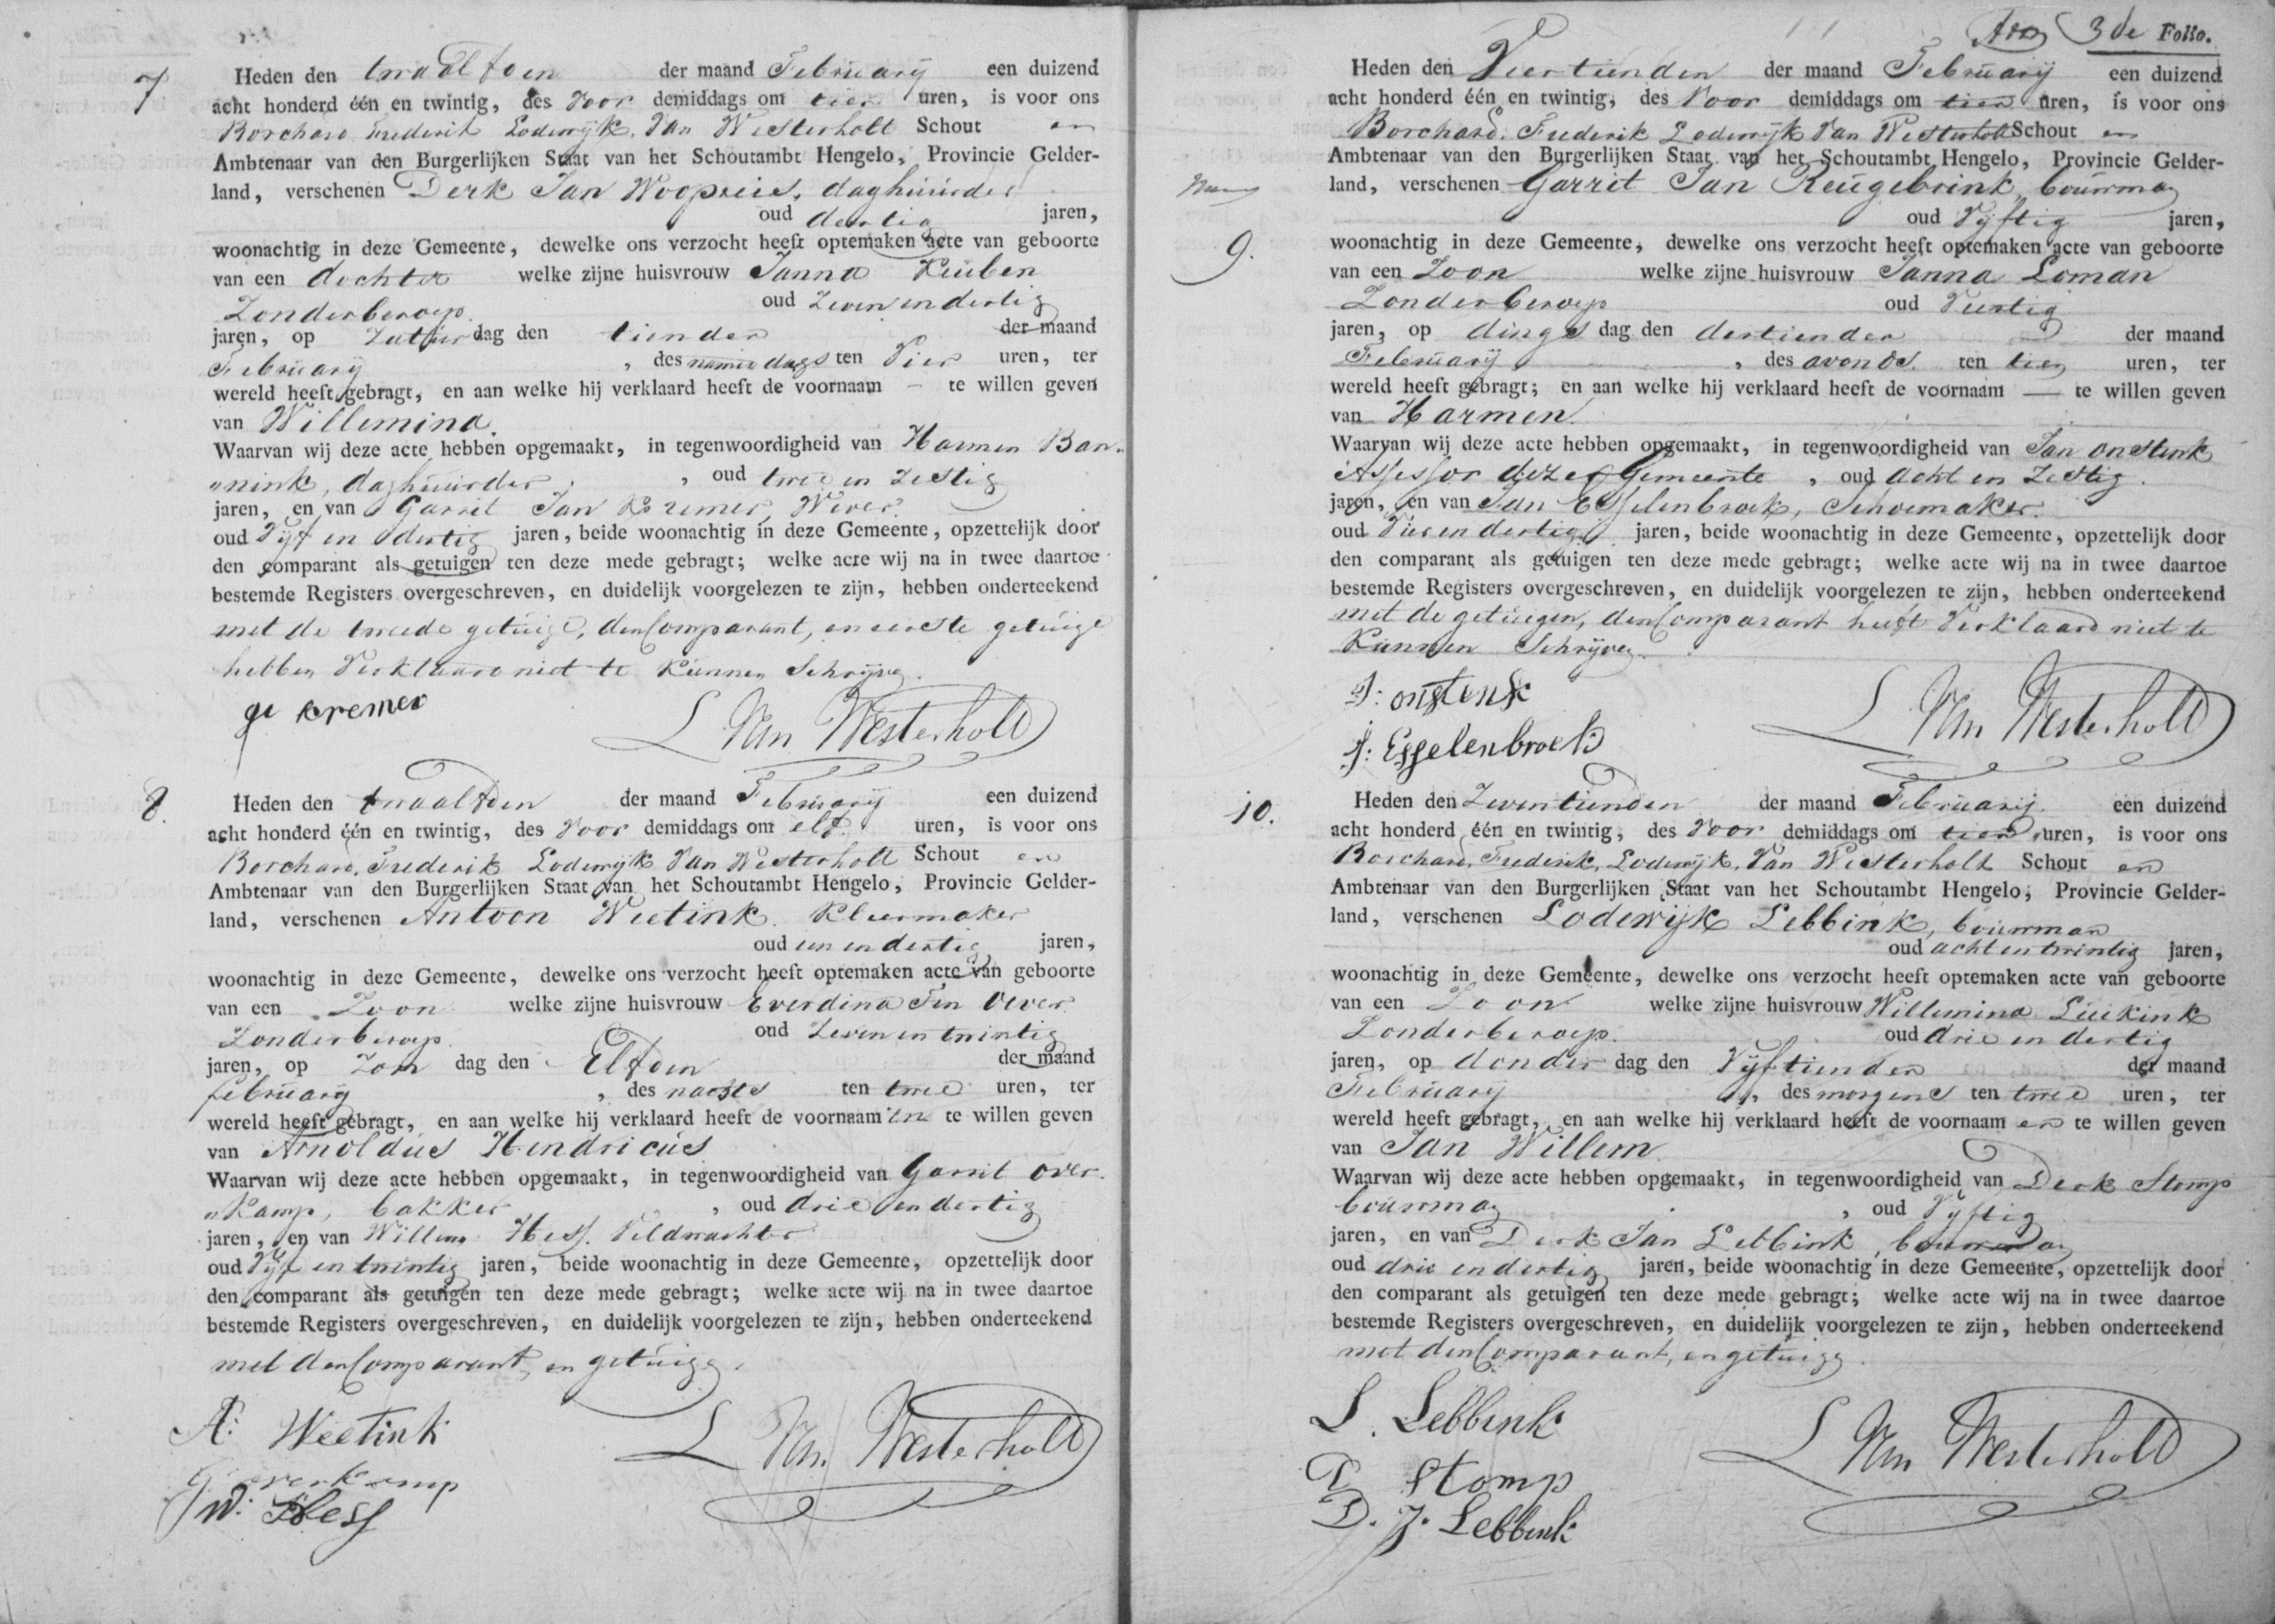 7
Heden den twaalfden der maand Februarij een duizend
acht honderd één en twintig, des Voor demiddags om tien uren, is voor ons
Borchard Frederik Lodewijk Van Westerholt Schout en
Ambtenaar van den Burgerlijken Staat van het Schoutambt Hengelo, Provincie Gelder-
land, verschenen Derk Jan daghuurder
oud dertig jaren,
woonachtig in deze Gemeente, dewelke ons verzocht heeft optemaken acte van geboorte
van een dochter welke zijne huisvrouw Janna Reuben
Zonderberoep oud Zeven en dertig
jaren, op Zatur dag den tienden der maand
Februarij, des namiddags ten Vier uren, ter
wereld heeft gebragt, en aan welke hij verklaard heeft de voornaam — te willen geven
van Willemina.
Waarvan wij deze acte hebben opgemaakt, in tegenwoordigheid van Harmen Ban-
"nink, daghuurder, oud twee en Zestig
jaren, en van Garrit Jan Kremer, Wever.
oud Vyf en dertig jaren, beide woonachtig in deze Gemeente, opzettelijk door
den comparant als getuigen ten deze mede gebragt; welke acte wij na in twee daartoe
bestemde Registers overgeschreven, en duidelijk voorgelezen te zijn, hebben onderteekend
met de tweede getuige, den Comparant, en eerste getuige
hebben Verklaard niet te Kunnen Schryven.
gi kremer
L Van Westerholt
8.
Heden den twaalfden der maand Februarij een duizend
acht honderd één en twintig, des Voor demiddags om elf uren, is voor ons
Borchard, Frederik Lodewijk Van Westerholt Schout en
Ambtenaar van den Burgerlijken Staat van het Schoutambt Hengelo, Provincie Gelder-
land, verschenen Antoon Weetink Kleermaker
oud een en dertig jaren,
woonachtig in deze Gemeente, dewelke ons verzocht heeft optemaken acte van geboorte
van een Zoon welke zijne huisvrouw Everdina Ten Oever
Zonderberoep. oud Zeven en twintig
jaren, op Zon dag den Elfden der maand
februarij, des nachts ten twee uren, ter
wereld heeft gebragt, en aan welke hij verklaard heeft de voornaam en te willen geven
van Arnoldus Hendricus
Waarvan wij deze acte hebben opgemaakt, in tegenwoordigheid van Garrit Over-
"Kamp, bakker, oud drie en dertig
jaren, en van Willem Hess. Veldwachter
oud Vyf en twintig jaren, beide woonachtig in deze Gemeente, opzettelijk door
den comparant als getuigen ten deze mede gebragt; welke acte wij na in twee daartoe
bestemde Registers overgeschreven, en duidelijk voorgelezen te zijn, hebben onderteekend
met den Comparant, en getuigen.
A: Weetink
G overkamp
W: Hess
L Van Westerholt
3de Folio.
Heden den Veertienden der maand Februarij een duizend
acht honderd één en twintig, des Voor demiddags om tien uren, is voor ons
Borchard. Frederik Lodewijk Van Westerholt Schout en
Ambtenaar van den Burgerlijken Staat van het Schoutambt Hengelo, Provincie Gelder-
land, verschenen Garrit Jan Reugebrink, bouwman
oud Vyftig jaren,
9.
woonachtig in deze Gemeente, dewelke ons verzocht heeft optemaken acte van geboorte
van een Zoon welke zijne huisvrouw Janna Loman
Zonderberoep oud Veertig
jaren, op dings dag den dertienden der maand
Februarij, des avonds. ten tien uren, ter
wereld heeft gebragt; en aan welke hij verklaard heeft de voornaam — te willen geven
van Harmen.
Waarvan wij deze acte hebben opgemaakt, in tegenwoordigheid van Jan Onstenk
Assessor dezer Gemeente, oud acht en Zestig.
jaren, en van Jan Esselenbroek, Schoemaker.
oud Vier en dertig jaren, beide woonachtig in deze Gemeente, opzettelijk door
den comparant als getuigen ten deze mede gebragt; welke acte wij na in twee daartoe
bestemde Registers overgeschreven, en duidelijk voorgelezen te zijn, hebben onderteekend
met de getuigen, den Comparant heeft Verklaard niet te
Kunnen Schryven.
J: onstenk
J: Esselenbroek
L Van Westerholt
10.
Heden den Zeventienden der maand Februarij een duizend
acht honderd één en twintig, des Voor demiddags om tien uren, is voor ons
Borchard, Frederik, Lodewijk, Van Westerholt Schout en
Ambtenaar van den Burgerlijken Staat van het Schoutambt Hengelo, Provincie Gelder-
land, verschenen Lodewijk Lebbink, bouwman
oud acht en twintig jaren,
woonachtig in deze Gemeente, dewelke ons verzocht heeft optemaken acte van geboorte
van een Zoon welke zijne huisvrouw Willemina Luikink
Zonderberoep. oud drie en dertig
jaren, op donder dag den Vyftienden der maand
Februarij, des morgens ten twee uren, ter
wereld heeft gebragt, en aan welke hij verklaard heeft de voornaam en te willen geven
van Jan Willem
Waarvan wij deze acte hebben opgemaakt, in tegenwoordigheid van Derk Stomp
bouwman, oud Vyftig
jaren, en van Derk Jan Lebbink, bouwman
oud drie en dertig jaren, beide woonachtig in deze Gemeente, opzettelijk door
den comparant als getuigen ten deze mede gebragt; welke acte wij na in twee daartoe
bestemde Registers overgeschreven, en duidelijk voorgelezen te zijn, hebben onderteekend
met den Comparant, en getuigen.
L. Lebbink
D Stomp
D. J. Lebbink
L Van Westerholt